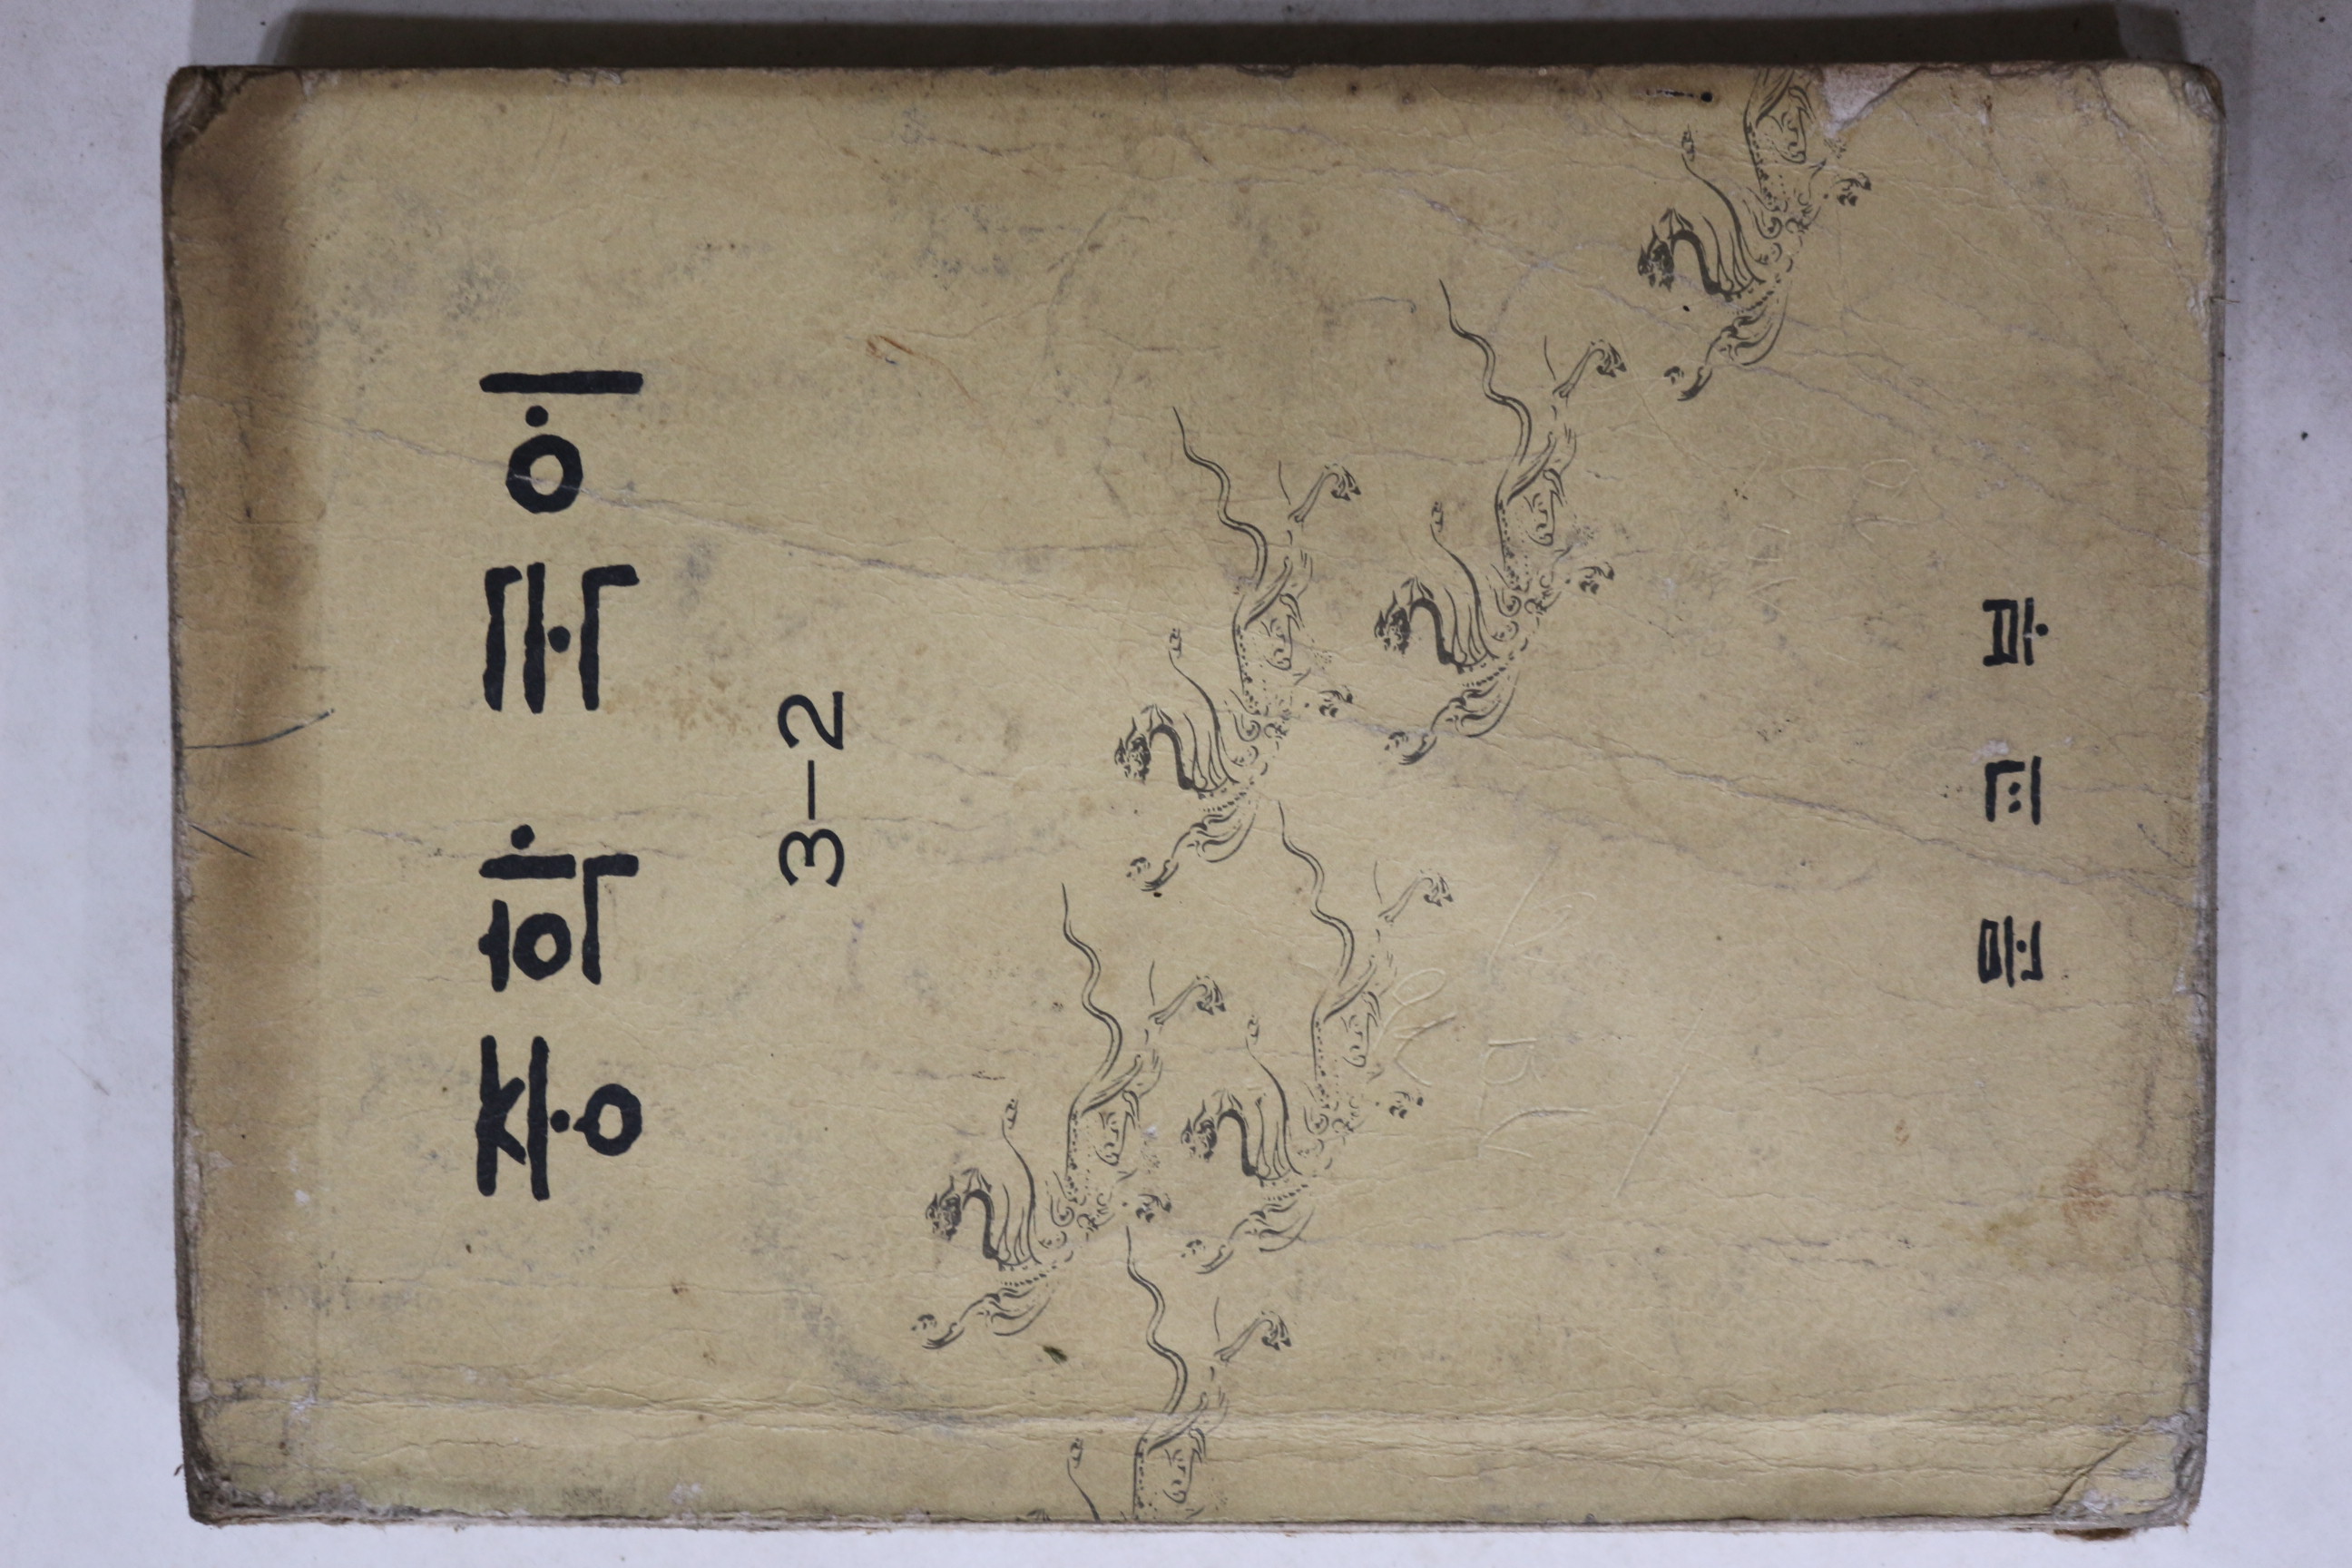 중학 국어
3-2
문교부